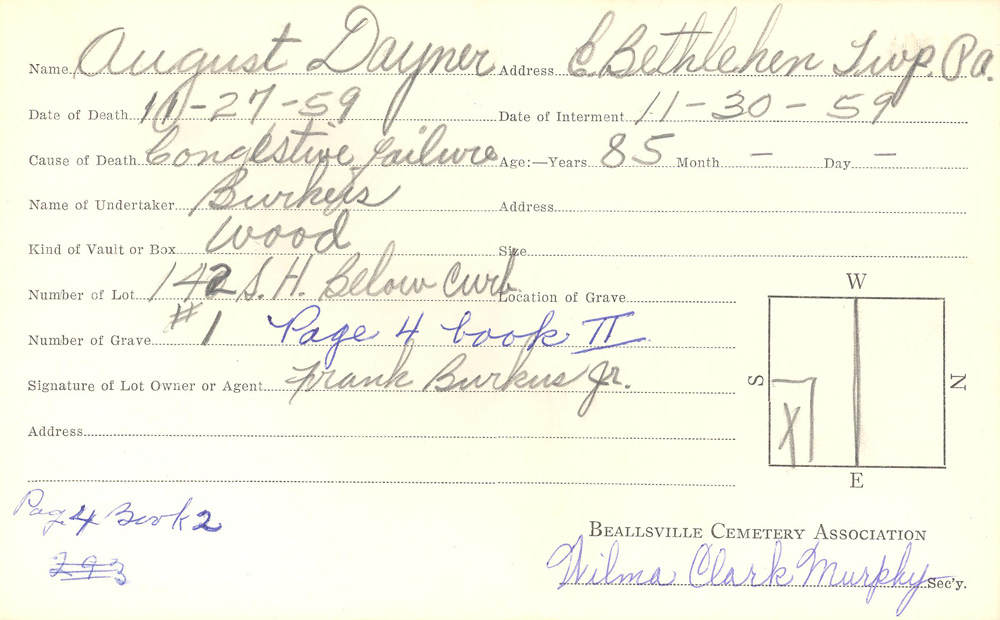 Name August Dayner Address E. Bethlehen Twp. Pa.
Date of Death 11-27-59 Date of Interment 11-30-59
Cause of Death Congestive failure Age:—Years 85 Month — Day —
Name of Undertaker Burkus Address
Kind of Vault or Box Wood Size
Number of Lot 142 S. H. Below Curb Location of Grave
Number of Grave #1 Page 4 book II
Signature of Lot Owner or Agent Frank Burkus Jr.
Address
W
S
N
X
E
Pag 4 Book 2
293
BEALLSVILLE CEMETERY ASSOCIATION
Wilma Clark Murphy Sec'y.